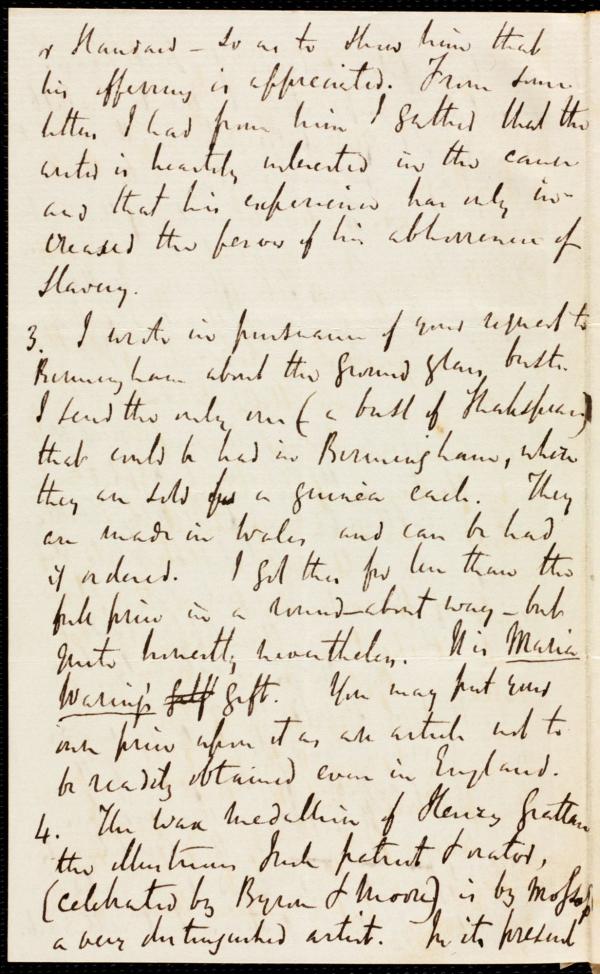 or Standard – so as to shew him that
his offering is appreciated. From some
letters I had from him I gathered that the
writer is heartily interested in the cause
and that his experience has only in-
creased the fervor of his abhorrence of
Slavery.
3. I wrote in pursuance of your request to
Birmingham about the ground glass busts.
I send the only one (a bust of Shakspeare)
that could be had in Birmingham, where
they are sold for a guinea each. They
are made in Wales and can be had
if ordered. I got this for less than the
full price in a round-about way – but
quite honestly nevertheless. It is Maria
Waring's gift. You may put your
own price upon it as an article not to
be readily obtained even in England.
4. The wax medallion of Henry Grattan
the illustrious Irish patriot & orator,
(celebrated by Byron & Moore) is by Mossop
a very distinguished artist. In its present